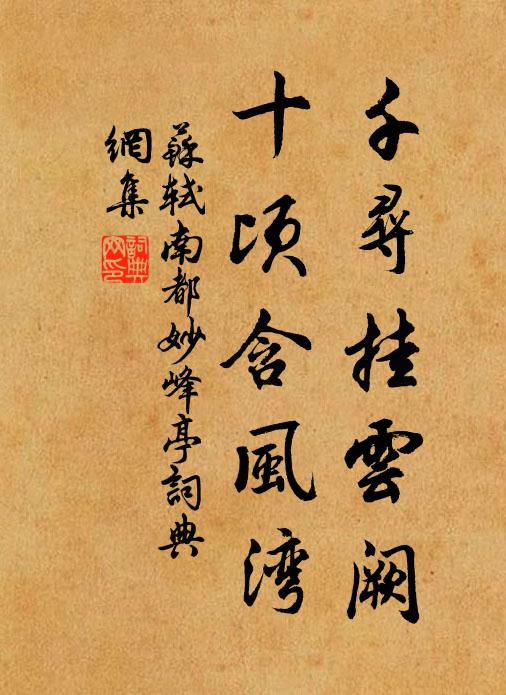 千尋挂雲闕
十頃含風湾
蘇軾南都妙峰亭詞典
網集
詞典
网印